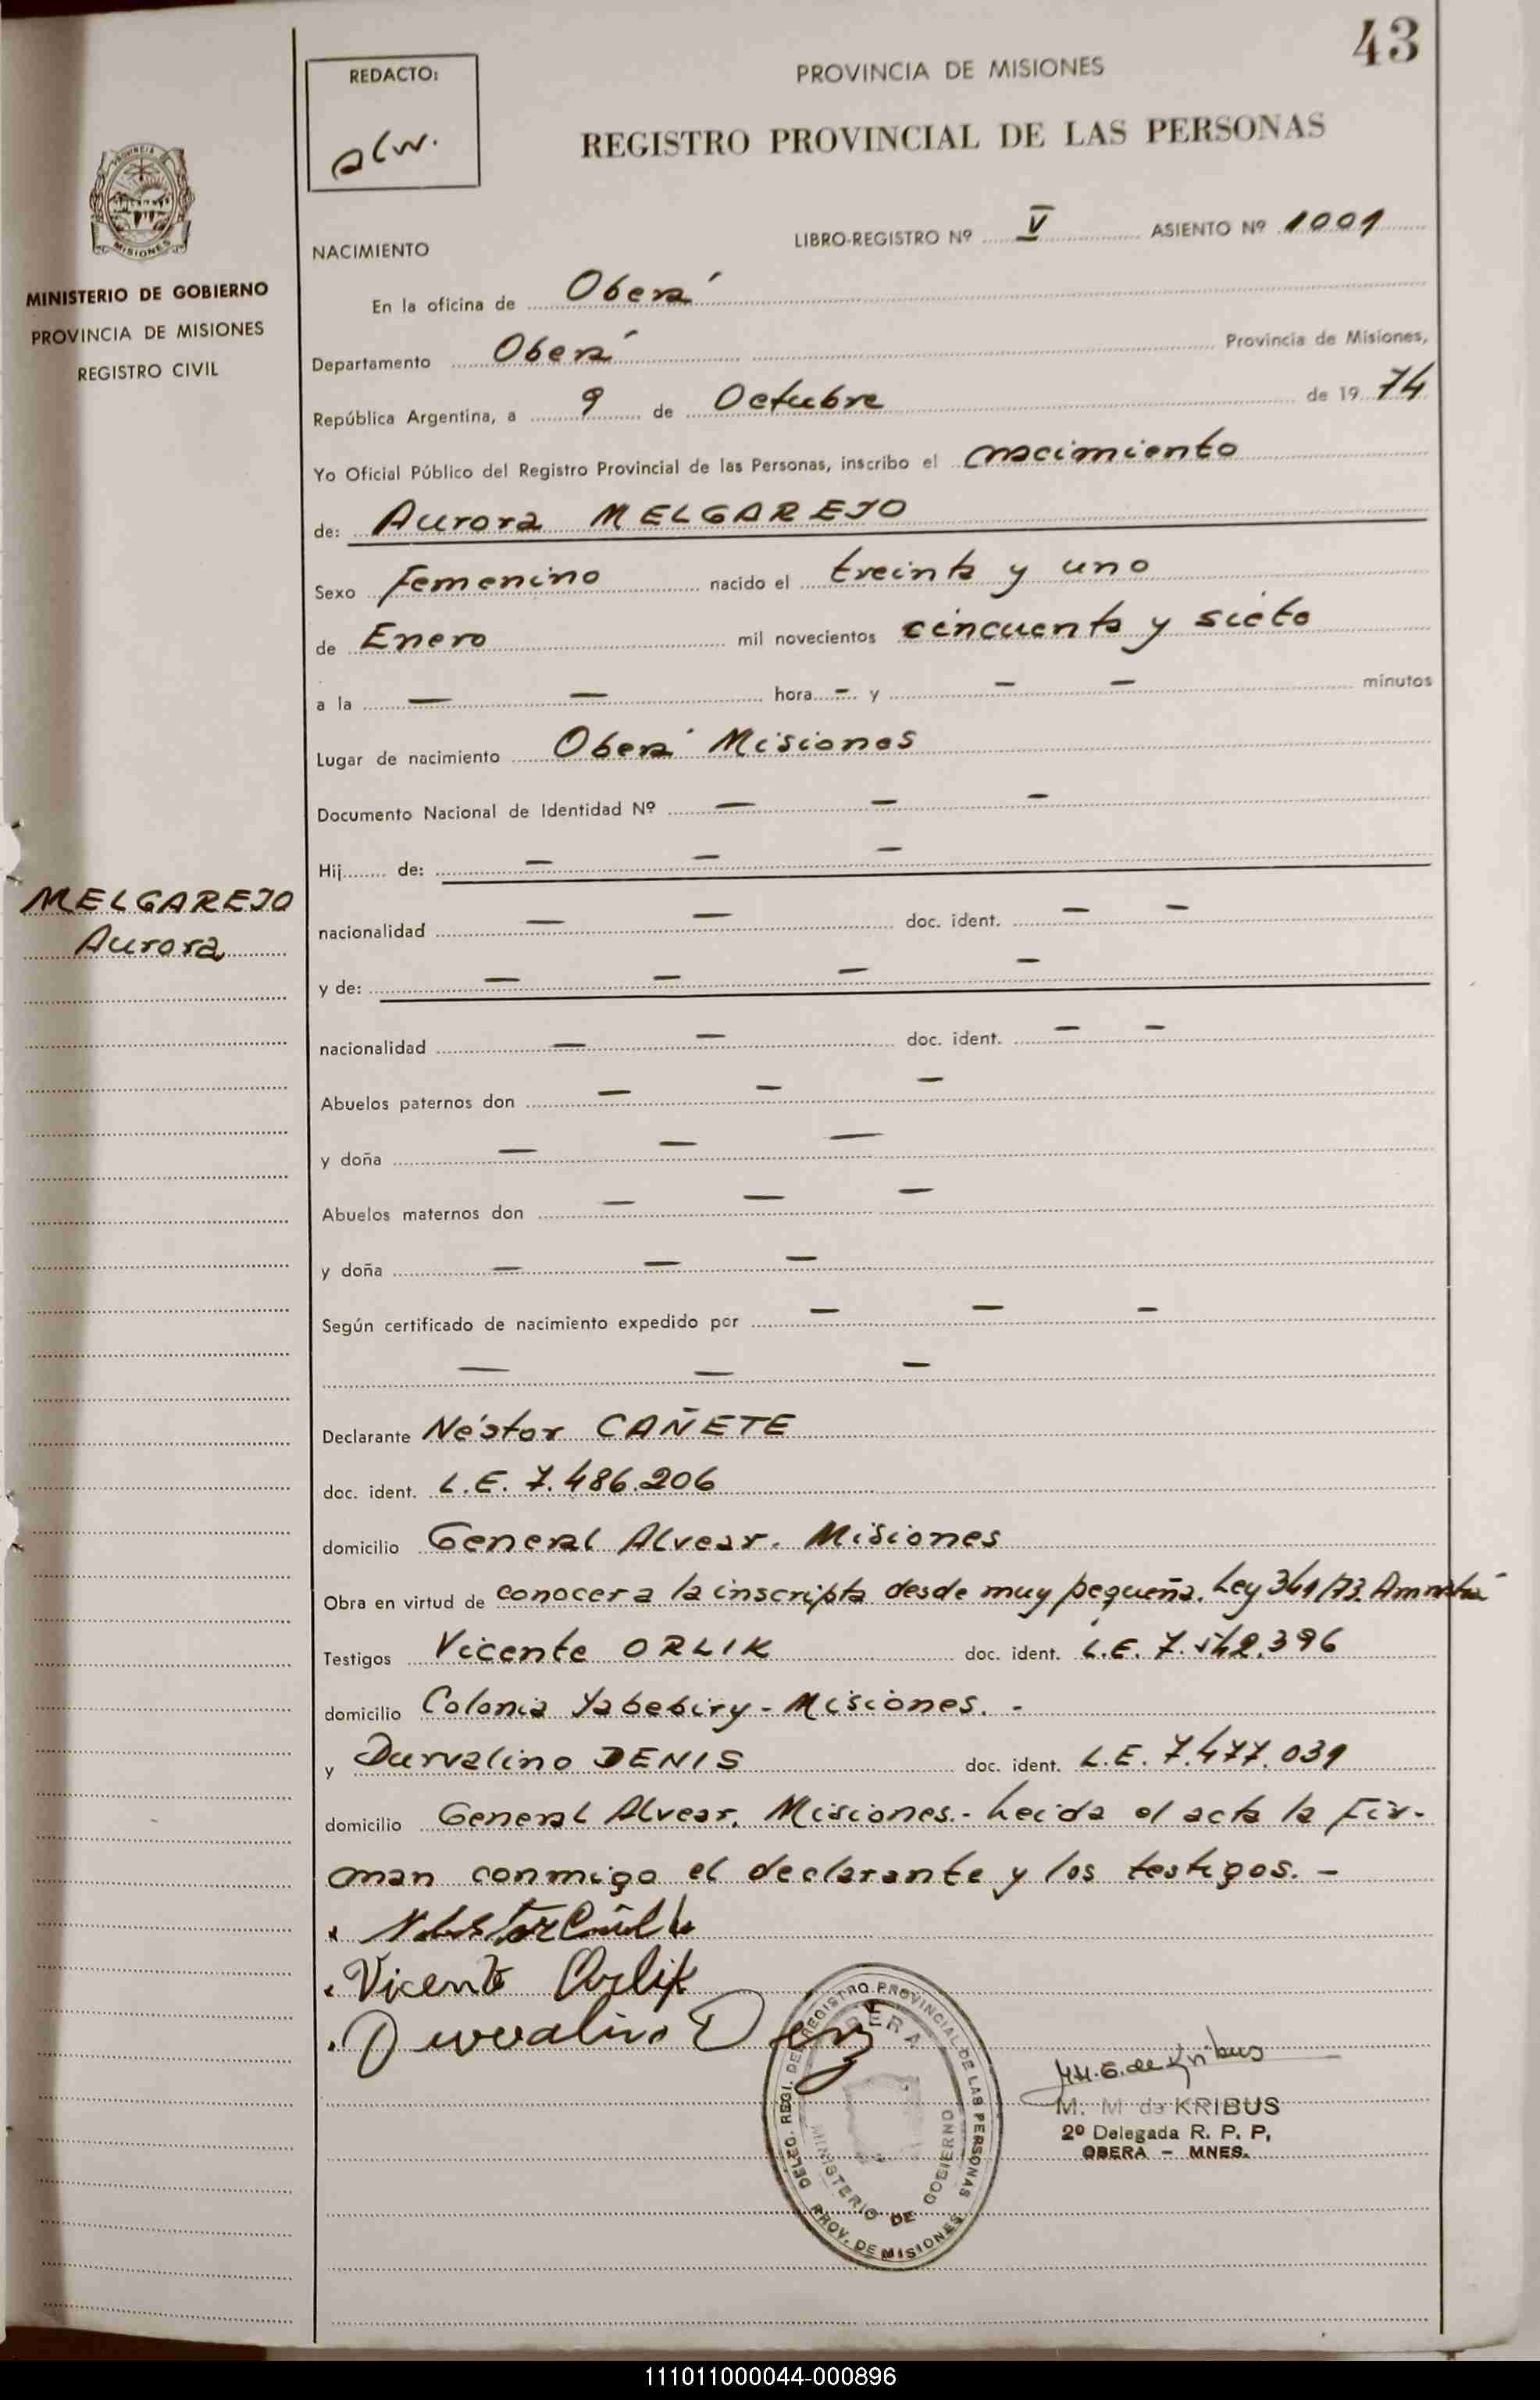 43
REDACTO:
alw.
PROVINCIA DE MISIONES
REGISTRO PROVINCIAL DE LAS PERSONAS
PROVINCIA DE
MISIONES
MINISTERIO DE GOBIERNO
PROVINCIA DE MISIONES
REGISTRO CIVIL
NACIMIENTO
LIBRO-REGISTRO Nº V ASIENTO Nº 1001
En la oficina de Oberá
Departamento Oberá Provincia de Misiones,
República Argentina, a 9 de Octubre de 19 74
Yo Oficial Público del Registro Provincial de las Personas, inscribo el nacimiento
de: Aurora MELGAREJO
Sexo femenino nacido el treinta y uno
de Enero mil novecientos cincuenta y siete
a la — — hora - y — — minutos
Lugar de nacimiento Oberá Misiones
Documento Nacional de Identidad Nº — — —
Hij........ de: — — —
MELGAREJO
Aurora
nacionalidad — — doc. ident. — —
y de: — — — —
nacionalidad — — doc. ident. — —
Abuelos paternos don — — —
y doña — — —
Abuelos maternos don — — —
y doña — — —
Según certificado de nacimiento expedido por — — —
— — —
Declarante Néstor CAÑETE
doc. ident. L.E. 7.486.206
domicilio General Alvear. Misiones
Obra en virtud de conocer a la inscripta desde muy pequeña. Ley 361/73. Amnistía
Testigos Vicente ORLIK doc. ident. L.E. 7.542.396
domicilio Colonia Yabebiry - Misiones. -
y Durvalino DENIS doc. ident. L.E. 7.477.039
domicilio General Alvear. Misiones.- Leida el acta la fir-
man conmigo el declarante y los testigos. -
Vicente Orlik
Durvalino Denis
DELEG. REGI. DEL REGISTRO PROVINCIAL DE LAS PERSONAS
OBERA
MINISTERIO DE GOBIERNO
PROV. DE MISIONES
M. M de KRIBUS
2º Delegada R. P. P,
OBERA - MNES.
111011000044-000896